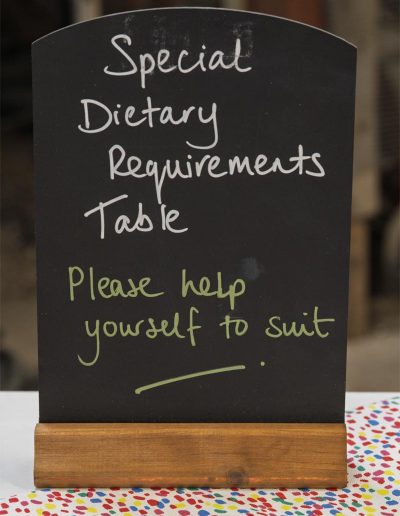 Special
Dietary
Requirements
Table
Please help
yourself to suit.